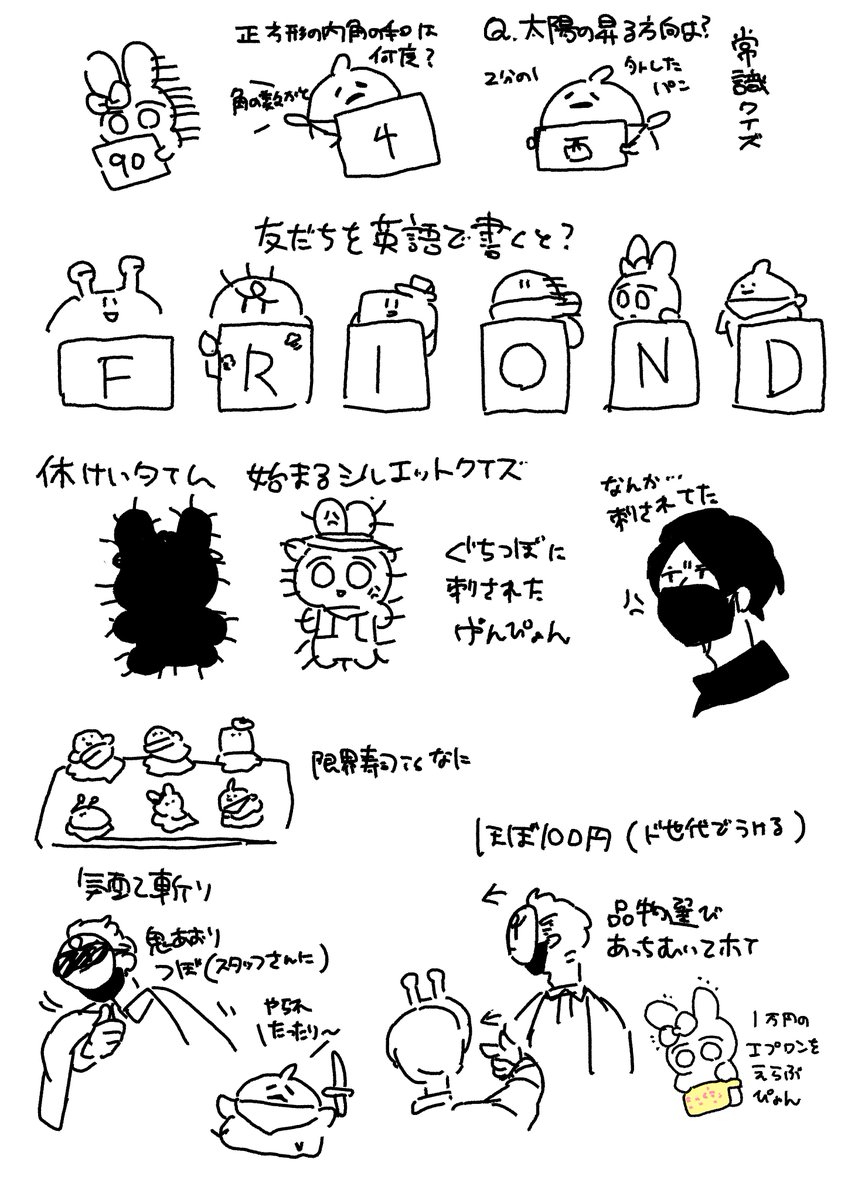 常識クイズ
Q.太陽の昇る方向は?
2分の1
外した
パン
西
正方形の内角の和は
何度?
角の数かと
4
90
友だちを英語で書くと?
F R I O N D
始まるシルエットクイズ
ぐちつぼに
刺された
げんぴょん
なんか…
刺されてた
限界寿司てなに
ほぼ100円(ド世代でうける)
品物選び
あっちむいてホイ
1万円の
エプロンを
えらぶ
ぴょん
斬り
鬼あおり
つぼ(スタッフさんに)
やられ
したったり〜